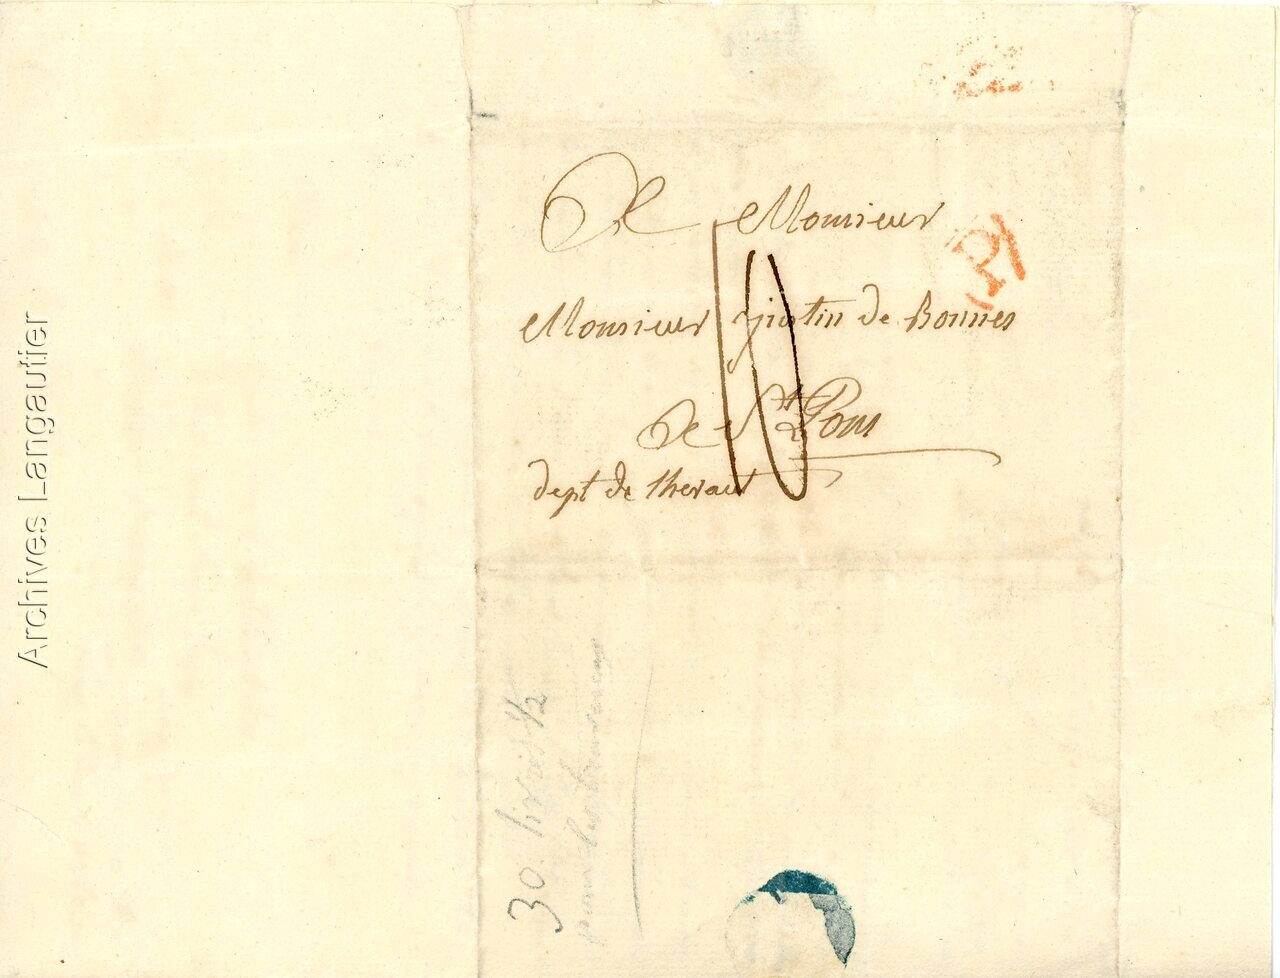 A Monsieur
Monsieur justin de Bonnes
de St Pons
dept de lherault
10
P
30 livres 1/2
Archives Langautier